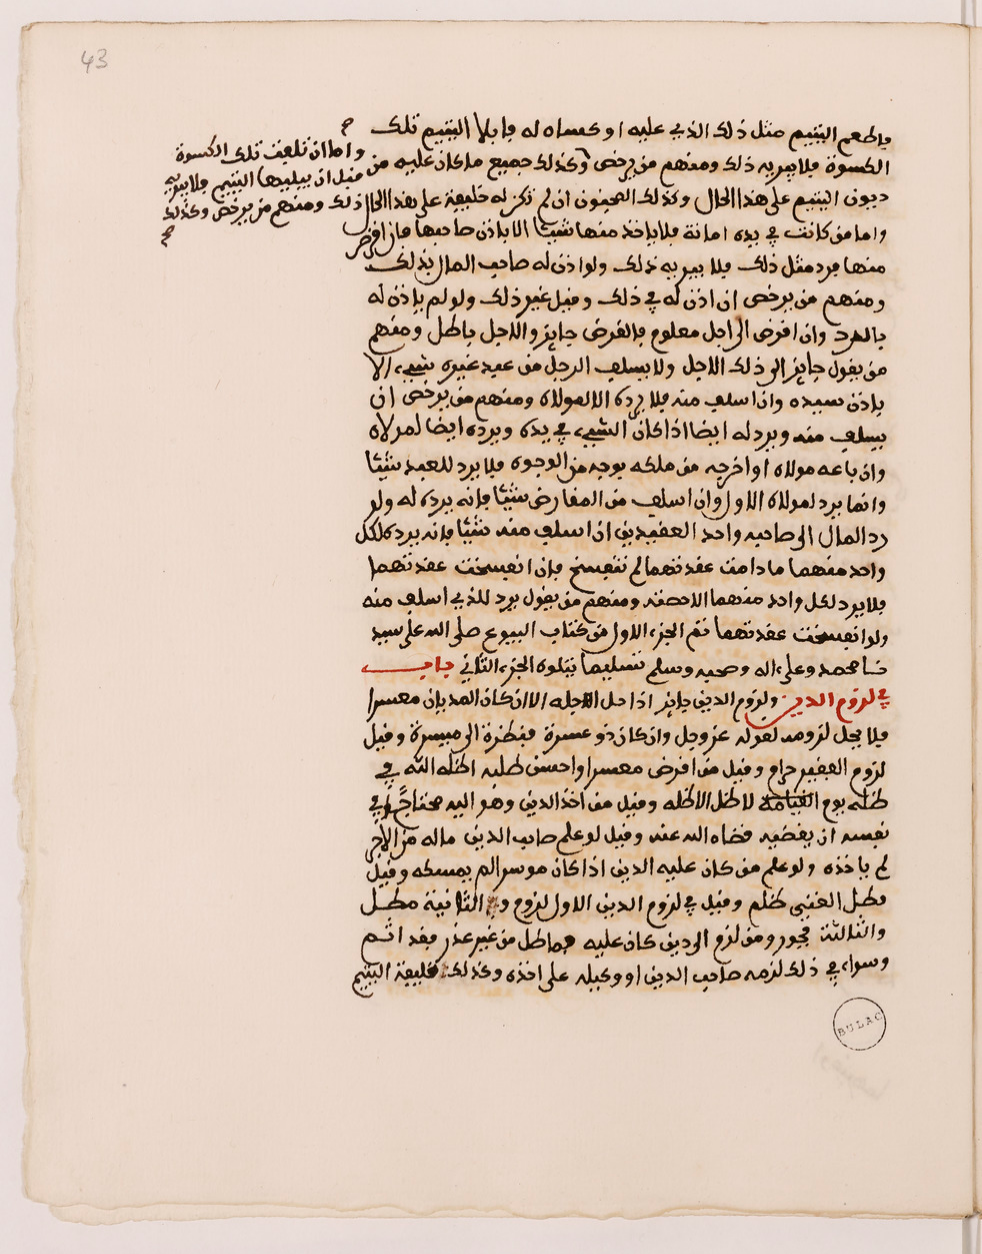 43
فاطعم اليتيم مثل ذلك الذي عليه او كساه له فابلا اليتيم تلك
الكسوة فلا يبريه ذلك ومنهم من يرخص وكذلك جميع ما كان عليه من
ديون اليتيم على هذا الحال وكذلك المجنون ان لم تكن له خليفة على هذا الحال
واما من كانت في يده امانة فلا ياخذ منها شيئا الا باذن صاحبها فان اقرض
منها فرد مثل ذلك فلا يبريه ذلك ولو اذن له صاحب المال بذلك
ومنهم من يرخص ان اذن له في ذلك وقيل غير ذلك ولو لم ياذن له
بالرد وان اقرض الى اجل معلوم فالقرض جايز والاجل باطل ومنهم
من يقول جايز الى ذلك الاجل ولا يسلف الرجل من عبد غيره شيء الا
باذن سيده وان اسلف منه فلا يرده الا لمولاه ومنهم من يرخص ان
يسلف منه ويرد له ايضا اذا كان الشيء في يده ويرده ايضا لمولاه
وان باعه مولاه او اخرجه من ملكه بوجه من الوجوه فلا يرد للعبد شيئا
وانما يرد لمولاه الاول وان اسلف من المقارض شيئا فانه يرده له ولو
رد المال الى صاحبه واحد العقيدين ان اسلف منه شيئا فانه يرده لكل
واحد منهما ما دامت عقدتهما لم تنفسخ فان انفسخت عقدتهما
فلا يرد لكل واحد منهما الا حصته ومنهم من يقول يرد للذي اسلف منه
ولو انفسخت عقدتهما تم الجزء الاول من كتاب البيوع صلى الله على سيد
نا محمد وعلى اله وصحبه وسلم تسليما يتلوه الجزء الثاني باب
في لزوم الدين ولزوم الدين جايز اذا حل اجله الا ان كان المديان معسرا
فلا يحل لزومه لقوله عز وجل وان كان ذو عسرة فنظرة الى ميسرة وقيل
لزوم الفقير حرام وقيل من اقرض معسرا واحسن طلبه اظله الله في
ظله يوم القيامة لا ظل الا ظله وقيل من اخذ الدين وهو اليه محتاج في
نفسه ان يقضيه قضاه الله عنه وقيل لو علم صاحب الدين ماله من الاجر
لم ياخذه ولو علم من كان عليه الدين اذا كان موسرا لم يمسكه وقيل
مطل الغني ظلم وقيل في لزوم الدين الاول لزوم و الثانية مطل
والثالثة فجور ومن لزم الى دين كان عليه فماطل من غير عذر فقد اثم
وسواء في ذلك لزمه صاحب الدين او وكيله على اخذه وكذلك خليفة اليتيم
واما ان تلفت تلك الكسوة
قبل ان يبليها اليتيم فلا يبريه
ذلك ومنهم من يرخص وكذلك
BULAC